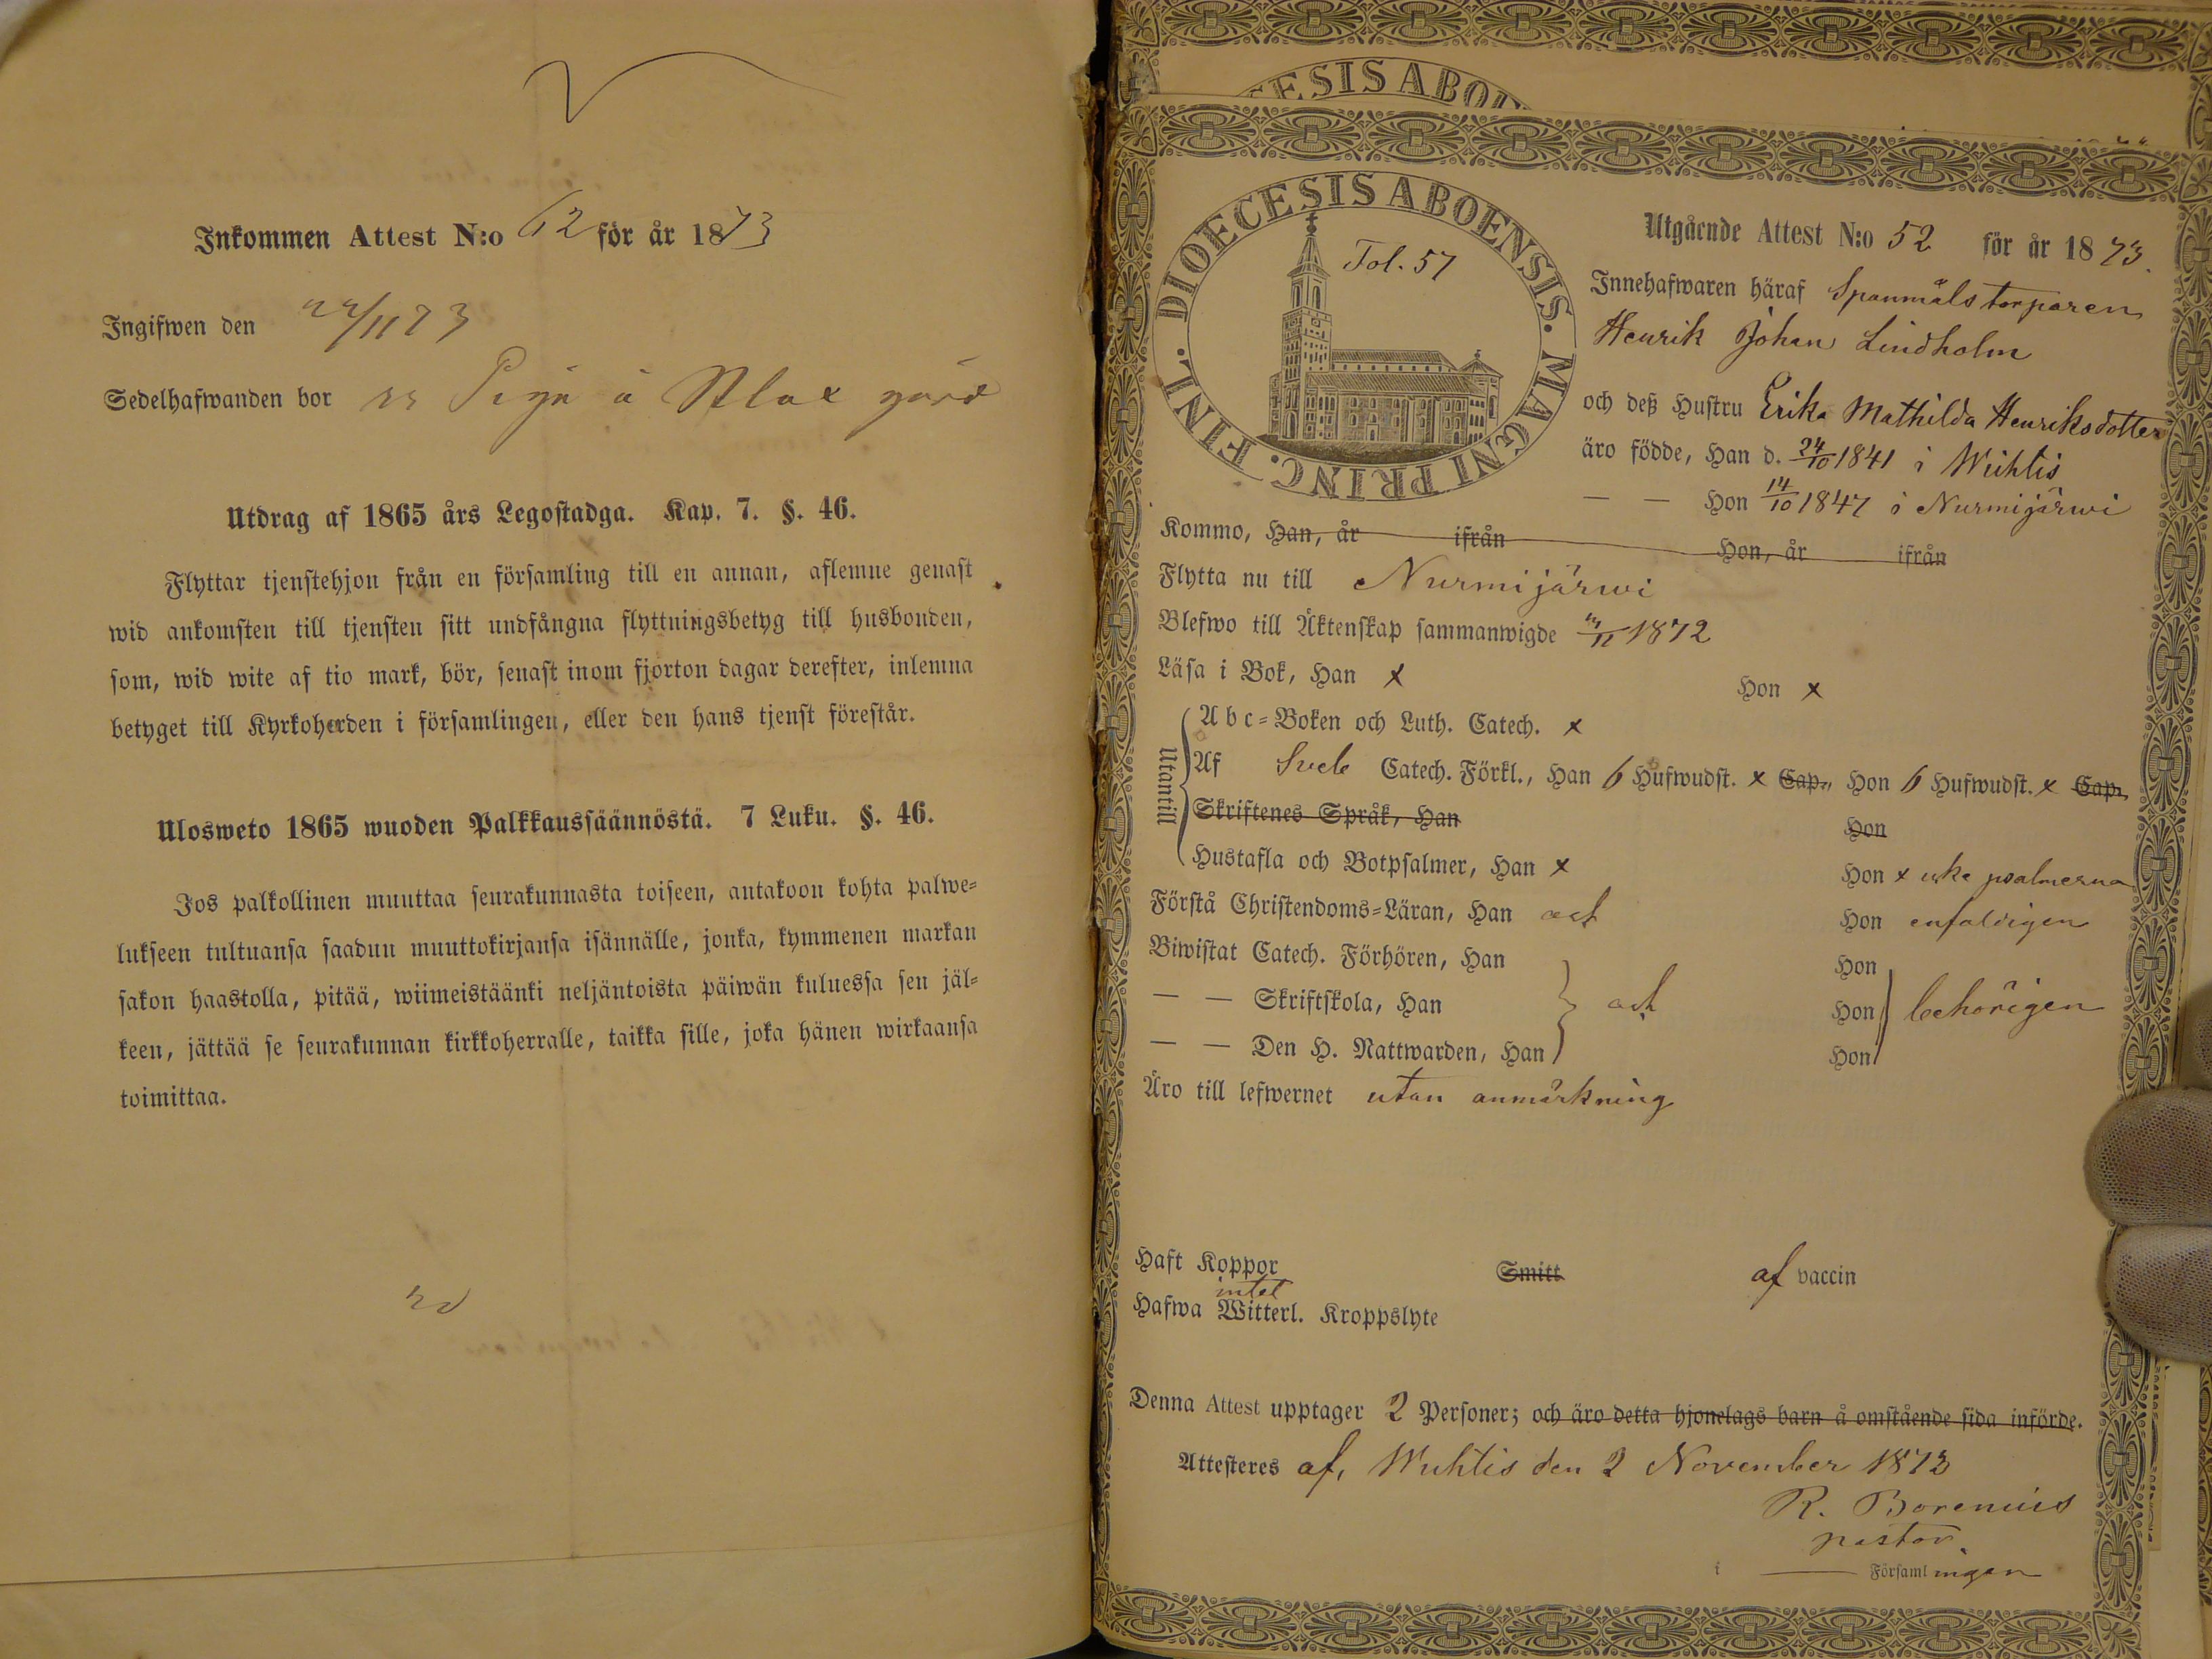 Inkommen Attest N:o 62 för år 1873
Ingifwen den /11 73
Sedelhafwanden bor
Utdrag af 1865 års Legostadga. Kap. 7. §. 46.
Flyttar tjenstehjon från en församling till en annan, aflemne genast
wid ankomsten till tjensten sitt undfångna flyttningsbetyg till husbonden,
som, wid wite af tio mark, bör, senast inom fjorton dagar derefter, inlemna
betyget till Kyrkoherden i församlingen, eller den hans tjenst förestår.
Ulosweto 1865 wuoden Palkkaussäännöstä. 7 Luku. §. 46.
Jos palkollinen muuttaa seurakunnasta toiseen, antakoon kohta palwe=
lukseen tultuansa saadun muuttokirjansa isännälle, jonka, kymmenen markan
sakon haastolla, pitää, wiimeistäänki neljäntoista päiwän kuluessa sen jäl=
keen, jättää se seurakunnan kirkkoherralle, taikka sille, joka hänen wirkaansa
toimittaa.
DIOECESIS ABOENSIS. MAGNI PRINC. FINL.
Fol. 57
Utgående Attest N:o 52 för år 1873.
Innehafwaren häraf Spanmålstorparen
Henrik Johan Lindholm
och deß Hustru Erika Mathilda Henriksdotter
äro födde, Han d. 24/10 1841 i Wichtis
— — Hon 14/10 1847 i Nurmijärwi
Kommo, Han, år ifrån Hon, år ifrån
Flytta nu till Nurmijärwi
Blefwo till Äktenskap sammanwigde /11 1872
Läsa i Bok, Han x Hon x
Utantill
Abc=Boken och Luth. Catech. x
Af Sveb Catech. Förkl., Han 6 Hufwudst. x Cap., Hon 6 Hufwudst. x Cap.
Skriftenes Språk, Han Hon
Hustafla och Botpsalmer, Han x Hon x icke psalmerna
Förstå Christendoms=Läran, Han och Hon enfaldigen
Biwistat Catech. Förhören, Han Hon
— — Skriftskola, Han och Hon behörigen
— — Den H. Nattwarden, Han Hon
Äro till lefwernet utan anmärkning
Haft Koppor Smitt af vaccin
intet
Hafwa Witterl. Kroppslyte
Denna Attest upptager 2 Personer; och äro detta hjonelags barn å omstående sida införde.
Attesteres af, Wichtis den 2 November 1873
R. Borenius
pastor
i — Församlingen